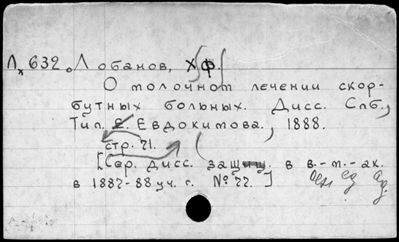 Лх 632. Лобанов, Х.Ф.
О молочном лечении скор-
бутных больных. Дисс. Спб.,
Тип. Е. Евдокимова., 1888.
стр. 71.
[Сер. дисс. защищ. в в.-т.-ак.
в 1887-88 уч. г. № 77.]